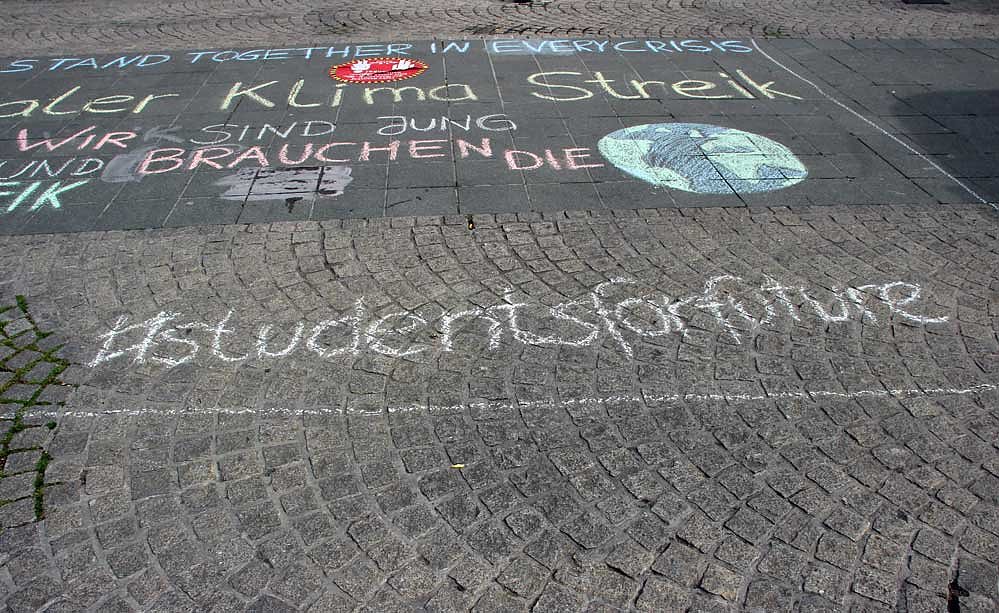 STAND TOGETHER IN EVERY CRISIS
aler Klima Streik
WIR SIND JUNG
UND BRAUCHEN DIE
FIK
#studentsforfuture